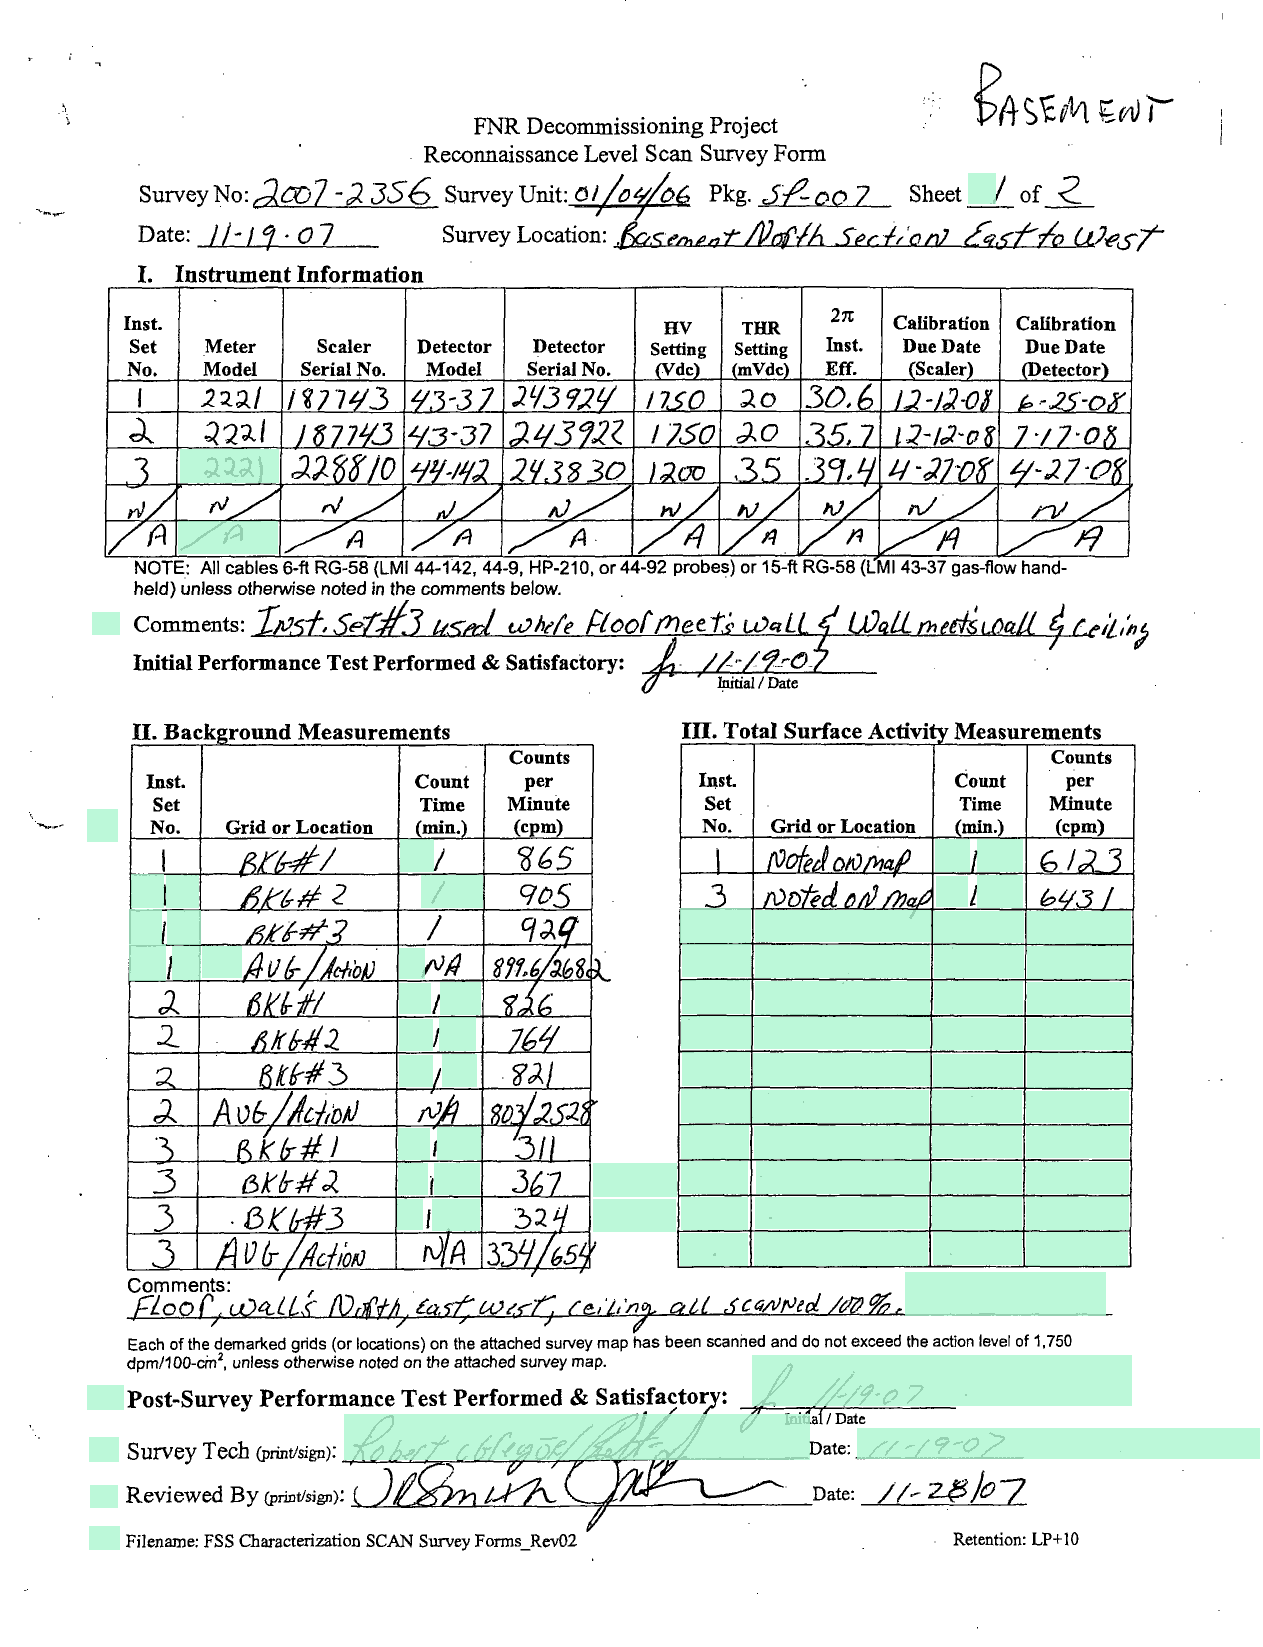 BASEMENT
FNR Decommissioning Project
Reconnaissance Level Scan Survey Form
Survey No: 2007-2356 Survey Unit: 01/04/06 Pkg. SP-007 Sheet 1 of 2
Date: 11-19-07 Survey Location: Basement North Section East to West
I. Instrument Information
Inst. Set No. Meter Model Scaler Serial No. Detector Model Detector Serial No. HV Setting (Vdc) THR Setting (mVdc) 2π Inst. Eff. Calibration Due Date (Scaler) Calibration Due Date (Detector)
1 2221 187743 43-37 243924 1750 20 30.6 12-12-08 6-25-08
2 2221 187743 43-37 243922 1750 20 35.7 12-12-08 7-17-08
3 2221 228810 44-142 243830 1200 35 39.4 4-27-08 4-27-08
N/A N/A N/A N/A N/A N/A N/A N/A N/A N/A
NOTE: All cables 6-ft RG-58 (LMI 44-142, 44-9, HP-210, or 44-92 probes) or 15-ft RG-58 (LMI 43-37 gas-flow hand-
held) unless otherwise noted in the comments below.
Comments: Inst. Set #3 used where Floor meets wall & Wall meets wall & ceiling
Initial Performance Test Performed & Satisfactory: 11-19-07
Initial / Date
II. Background Measurements
Inst. Set No. Grid or Location Count Time (min.) Counts per Minute (cpm)
1 BKG#1 1 865
1 BKG#2 1 905
1 BKG#3 1 929
1 AVG/Action NA 899.6/2682
2 BKG#1 1 826
2 BKG#2 1 764
2 BKG#3 1 821
2 AVG/Action N/A 803/2528
3 BKG#1 1 311
3 BKG#2 1 367
3 BKG#3 1 324
3 AVG/Action N/A 334/654
III. Total Surface Activity Measurements
Inst. Set No. Grid or Location Count Time (min.) Counts per Minute (cpm)
1 Noted on map 1 6123
3 Noted on map 1 6431
Comments:
Floor, walls North, East, west, ceiling all scanned 100%.
Each of the demarked grids (or locations) on the attached survey map has been scanned and do not exceed the action level of 1,750
dpm/100-cm², unless otherwise noted on the attached survey map.
Post-Survey Performance Test Performed & Satisfactory: 11-19-07
Initial / Date
Survey Tech (print/sign): Robert Date: 11-19-07
Reviewed By (print/sign): Smith Date: 11-28/07
Filename: FSS Characterization SCAN Survey Forms_Rev02 Retention: LP+10